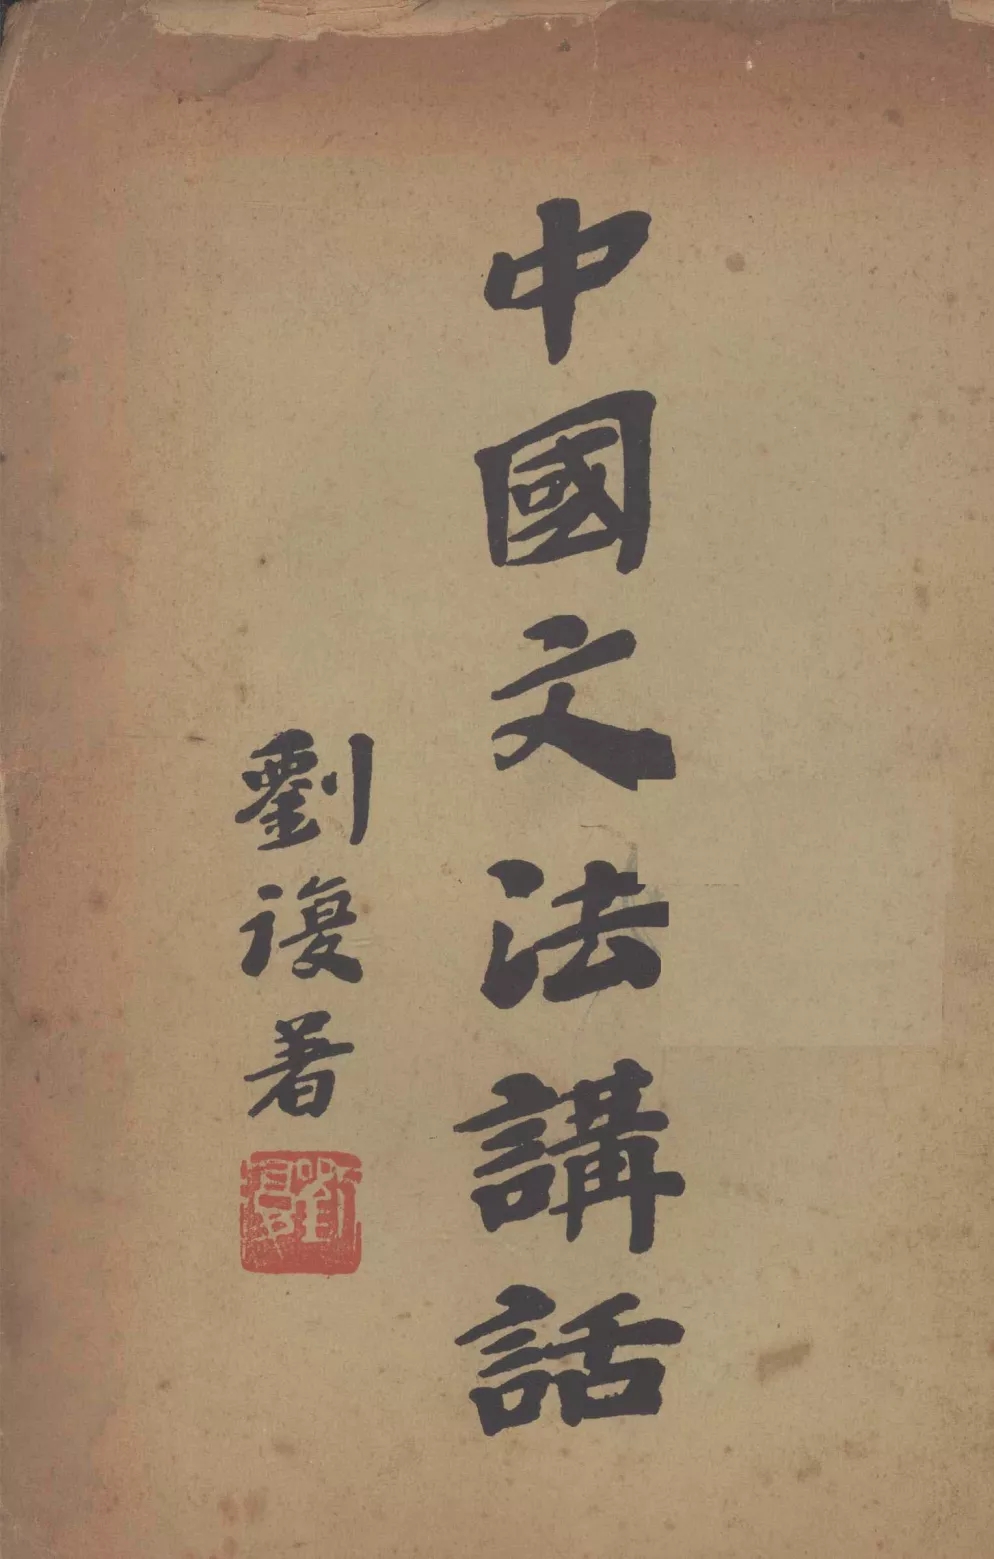 中國文法講話
劉復著